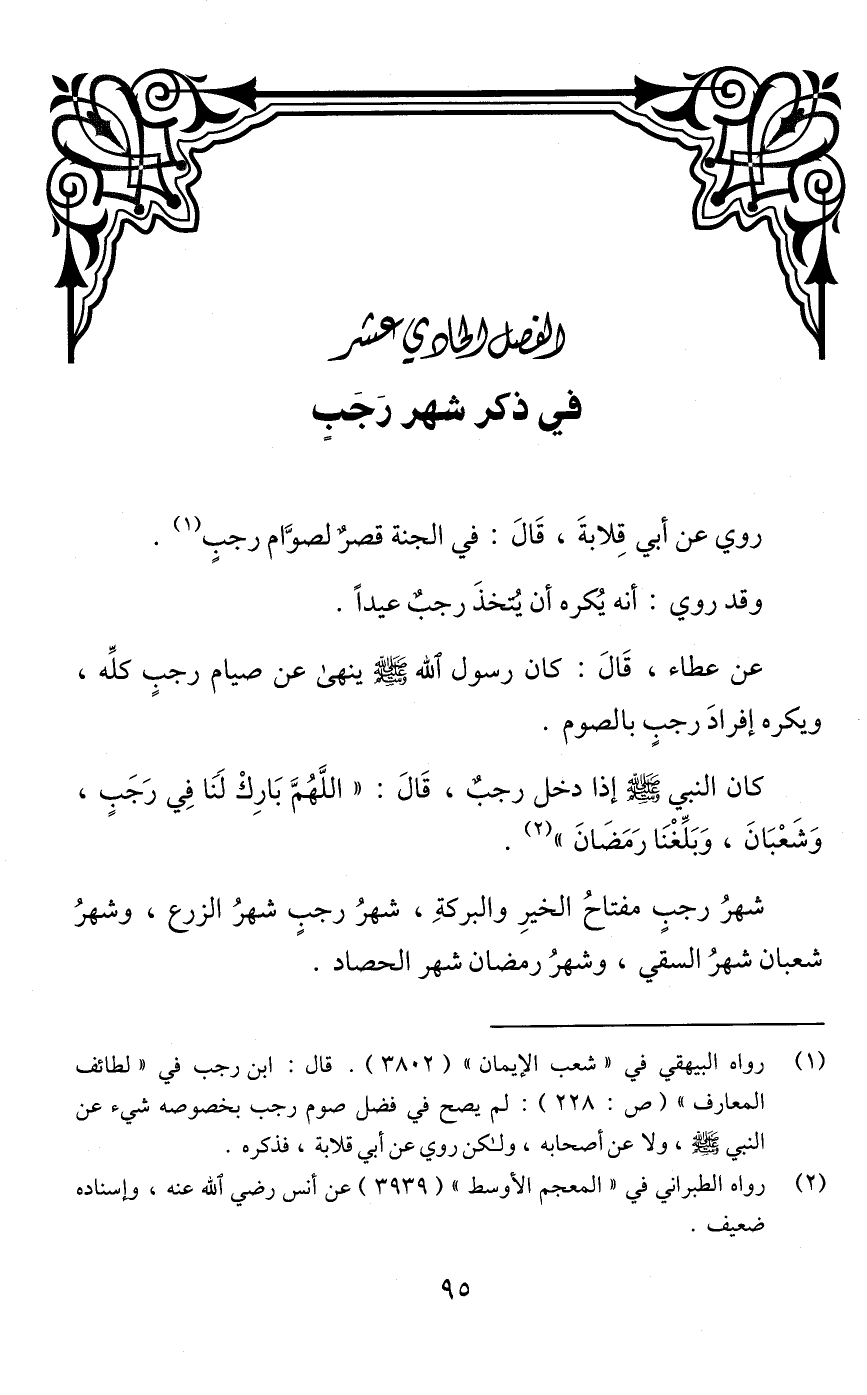 الفصل الحادي عشر
في ذكر شهر رَجَبٍ
روي عن أبي قِلابةَ ، قَالَ : في الجنة قصرٌ لصوَّام رجبٍ(١) .
وقد روي : أنه يُكره أن يُتخذَ رجبٌ عيداً .
عن عطاء ، قَالَ : كان رسول ٱلله ﷺ ينهىٰ عن صيام رجبٍ كلِّه ،
ويكره إفرادَ رجبٍ بالصوم .
كان النبي ﷺ إذا دخل رجبٌ ، قَالَ : « اللَّهُمَّ بَارِكْ لَنَا فِي رَجَبٍ ،
وَشَعْبَانَ ، وَبَلِّغْنَا رَمَضَانَ »(٢) .
شهرُ رجبٍ مفتاحُ الخيرِ والبركةِ ، شهرُ رجبٍ شهرُ الزرع ، وشهرُ
شعبان شهرُ السقي ، وشهرُ رمضان شهر الحصاد .
(١) رواه البيهقي في « شعب الإيمان » ( ٣٨٠٢ ) . قال : ابن رجب في « لطائف
المعارف » ( ص : ٢٢٨ ) : لم يصح في فضل صوم رجب بخصوصه شيء عن
النبي ﷺ ، ولا عن أصحابه ، ولـٰكن روي عن أبي قلابة ، فذكره .
(٢) رواه الطبراني في « المعجم الأوسط » ( ٣٩٣٩ ) عن أنس رضي ٱلله عنه ، وإسناده
ضعيف .
٩٥